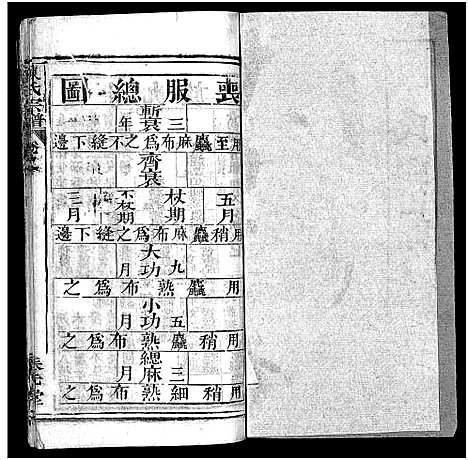 喪服總圖
斬衰 三年
用至麤麻布為之不縫下邊
齊衰
五月 杖期 不杖期 三月
用稍麤麻布為之縫下邊
大功 九月
用麤熟布為之
小功 五月
用稍麤熟布為之
緦麻 三月
用稍細熟布為之
陳氏宗譜